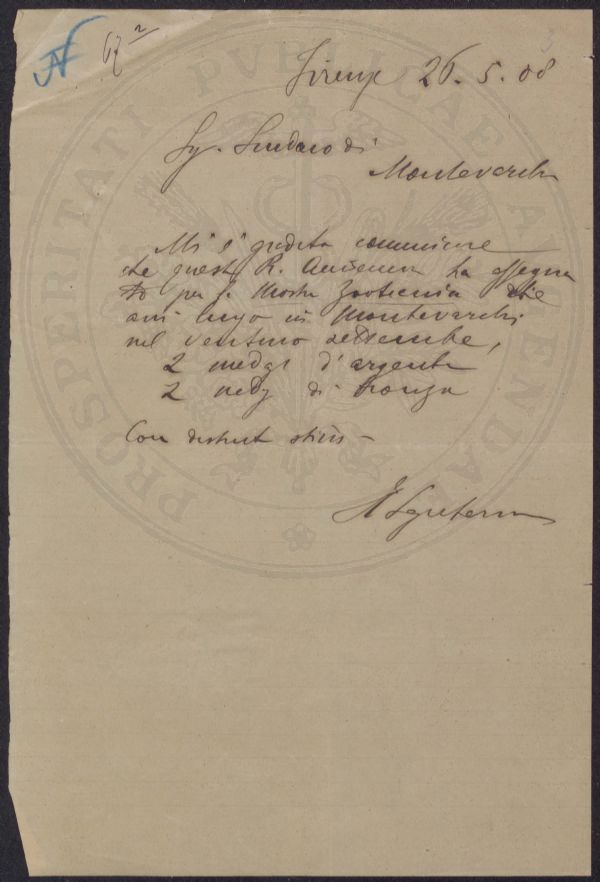 67
Firenze 26. 5. 08
Sig. Sindaco di
Montevarchi
Mi è gradito comunicare
che questa R. Accademia ha assegna
to per la Mostra Zootecnica che
avrà luogo in Montevarchi
nel venturo settembre,
2 medgl d'argento
2 medg di bronzo
Con distinta stima
Il Segretario
PROSPERITATI PVBLICAE AVGENDAE